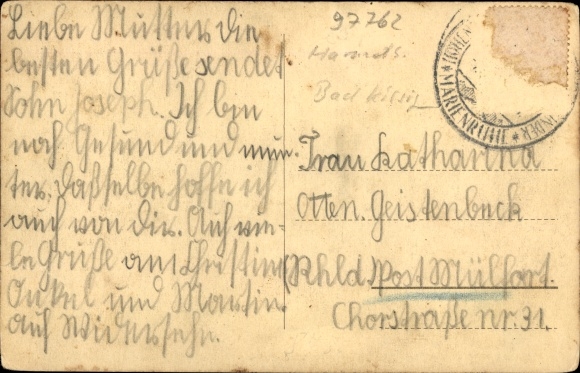 Liebe Mutter die
besten Grüße sendet
Sohn Joseph. Ich bin
noch Gesund und mun-
ter. Daßselbe hoffe ich
auch von dir. Auch vie-
le Grüße am Christine
Onkel und Martin.
Auf Widersehn.
97762
Bad Kissig
MARIENRUHE
Frau Katharina
Otten. Geistenbeck
(Rhld.) Post Mülfort.
Chorstraße nr. 31.